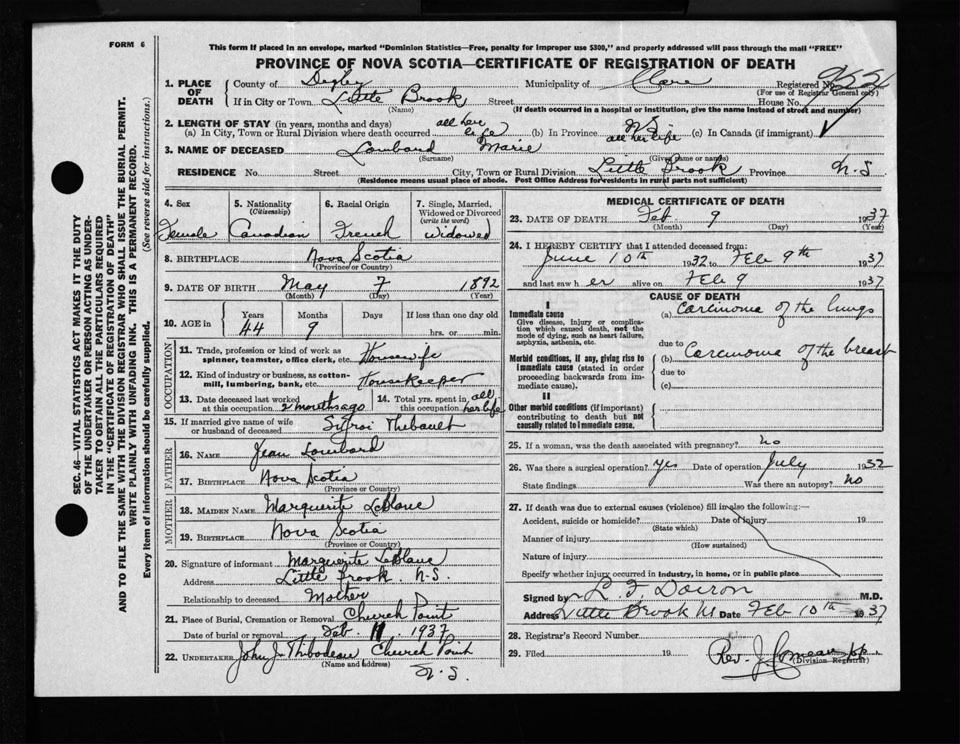 FORM 6
This form if placed in an envelope, marked "Dominion Statistics—Free, penalty for improper use $300," and properly addressed will pass through the mail "FREE"
PROVINCE OF NOVA SCOTIA—CERTIFICATE OF REGISTRATION OF DEATH
1. PLACE OF DEATH County of Digby Municipality of Clare Registered No.
(For use of Registrar General only)
If in City or Town Little Brook Street House No.
(Name) (If death occurred in a hospital or institution, give the name instead of street and number)
2. LENGTH OF STAY (in years, months and days)
(a) In City, Town or Rural Division where death occurred all her life (b) In Province N S all her life (c) In Canada (if immigrant)
3. NAME OF DECEASED Lombard Marie
(Surname) (Given name or names)
RESIDENCE No. Street City, Town or Rural Division Little Brook Province N.S
(Residence means usual place of abode. Post Office Address for residents in rural parts not sufficient)
4. Sex 5. Nationality (Citizenship) 6. Racial Origin 7. Single, Married, Widowed or Divorced (write the word)
Female Canadian French Widowed
8. BIRTHPLACE Nova Scotia
(Province or Country)
9. DATE OF BIRTH May 7 1892
(Month) (Day) (Year)
10. AGE in Years Months Days If less than one day old
44 9 hrs. or min.
OCCUPATION
11. Trade, profession or kind of work as spinner, teamster, office clerk, etc. Housewife
12. Kind of industry or business, as cotton-mill, lumbering, bank, etc. Housekeeper
13. Date deceased last worked at this occupation 2 months ago 14. Total yrs. spent in this occupation all her life
15. If married give name of wife or husband of deceased Thibault
FATHER
16. NAME Jean Lombard
17. BIRTHPLACE Nova Scotia
(Province or Country)
MOTHER
18. MAIDEN NAME Marguerite LeBlanc
19. BIRTHPLACE Nova Scotia
(Province or Country)
20. Signature of informant Marguerite LeBlanc
Address Little Brook, N-S.
Relationship to deceased Mother
21. Place of Burial, Cremation or Removal Church Point
Date of burial or removal Feb. 11. 1937
22. UNDERTAKER John J. Thibodeau Church Point
(Name and Address)
N.S.
MEDICAL CERTIFICATE OF DEATH
23. DATE OF DEATH Feb. 9 1937
(Month) (Day) (Year)
24. I HEREBY CERTIFY that I attended deceased from:
June 10th 1932 to Feb 9th 1937
and last saw her alive on Feb 9 1937
CAUSE OF DEATH
I
Immediate cause
Give disease, injury or complication which caused death, not the mode of dying, such as heart failure, asphyxia, asthenia, etc.
(a) Carcinoma of the lungs
due to
Morbid conditions, if any, giving rise to immediate cause (stated in order proceeding backwards from immediate cause).
(b) Carcinoma of the breast
due to
(c)
II
Other morbid conditions (if important) contributing to death but not causally related to immediate cause.
25. If a woman, was the death associated with pregnancy? no
26. Was there a surgical operation? yes Date of operation July 1932
State findings Was there an autopsy? no
27. If death was due to external causes (violence) fill in also the following:—
Accident, suicide or homicide? Date of injury 19
(State which)
Manner of injury
(How sustained)
Nature of injury
Specify whether injury occurred in industry, in home, or in public place
Signed by L. F. Doiron M.D.
Address Little Brook Date Feb 10th 1937
28. Registrar's Record Number
29. Filed 19 Rev. J. Comeau pp.
(Division Registrar)
SEC. 46—VITAL STATISTICS ACT MAKES IT THE DUTY
OF THE UNDERTAKER OR PERSON ACTING AS UNDER-
TAKER TO OBTAIN ALL THE PARTICULARS REQUIRED
IN THE "CERTIFICATE OF REGISTRATION OF DEATH"
AND TO FILE THE SAME WITH THE DIVISION REGISTRAR WHO SHALL ISSUE THE BURIAL PERMIT.
WRITE PLAINLY WITH UNFADING INK. THIS IS A PERMANENT RECORD.
Every item of information should be carefully supplied. (See reverse side for instructions.)